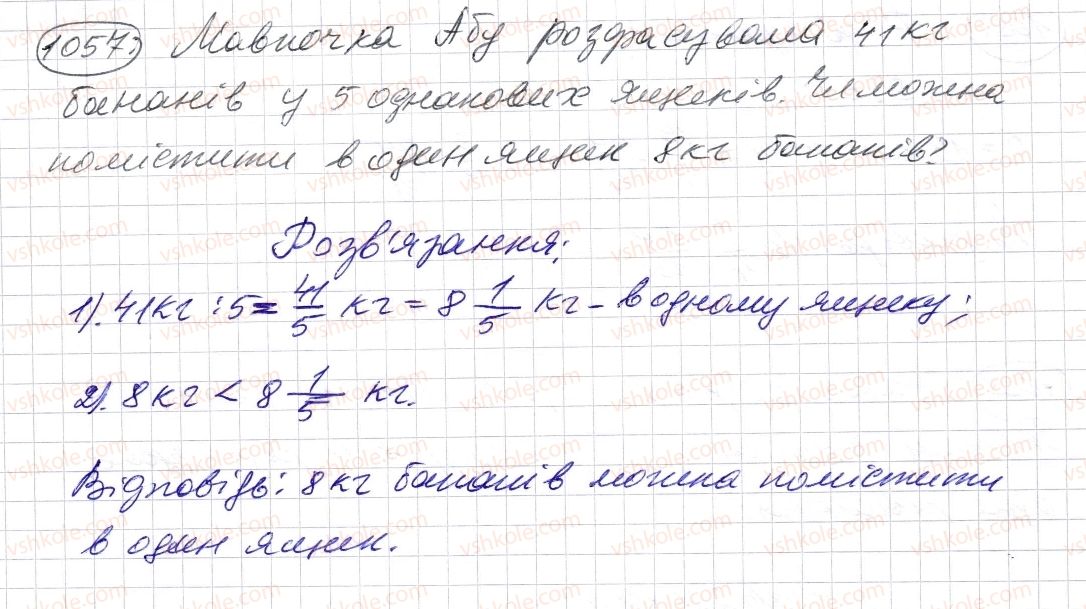 1057) Мавпочка Абу розфасувала 41 кг
бананів у 5 однакових ящиків. Чи можна
помістити в один ящик 8 кг бананів?
Розв'язання:
1). 41 кг : 5 = 41/5 кг = 8 1/5 кг – в одному ящику;
2). 8 кг < 8 1/5 кг.
Відповідь: 8 кг бананів можна помістити
в один ящик.